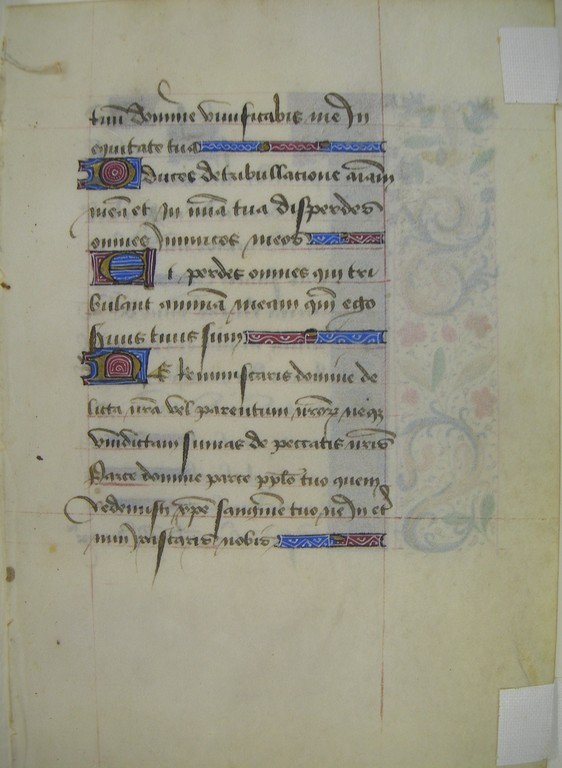 tuū domine vivificabis me In
equitate tua
Educes de tribullatione aīam
meā et in mīa tua disperdes
omnes Inimicos meos
Et perdes omnes qui tri
bulant animā meam qm̄ ego
servus tuus sum
NE Reminiscaris domine de
licta nr̄a vel parentum nr̄orꝫ neqꝫ
vindictam sumas de peccatis nr̄is
Parce domine parce pplō tuo quem
redemisti xp̄e sanguine tuo ne In et̾
num Irascaris nobis